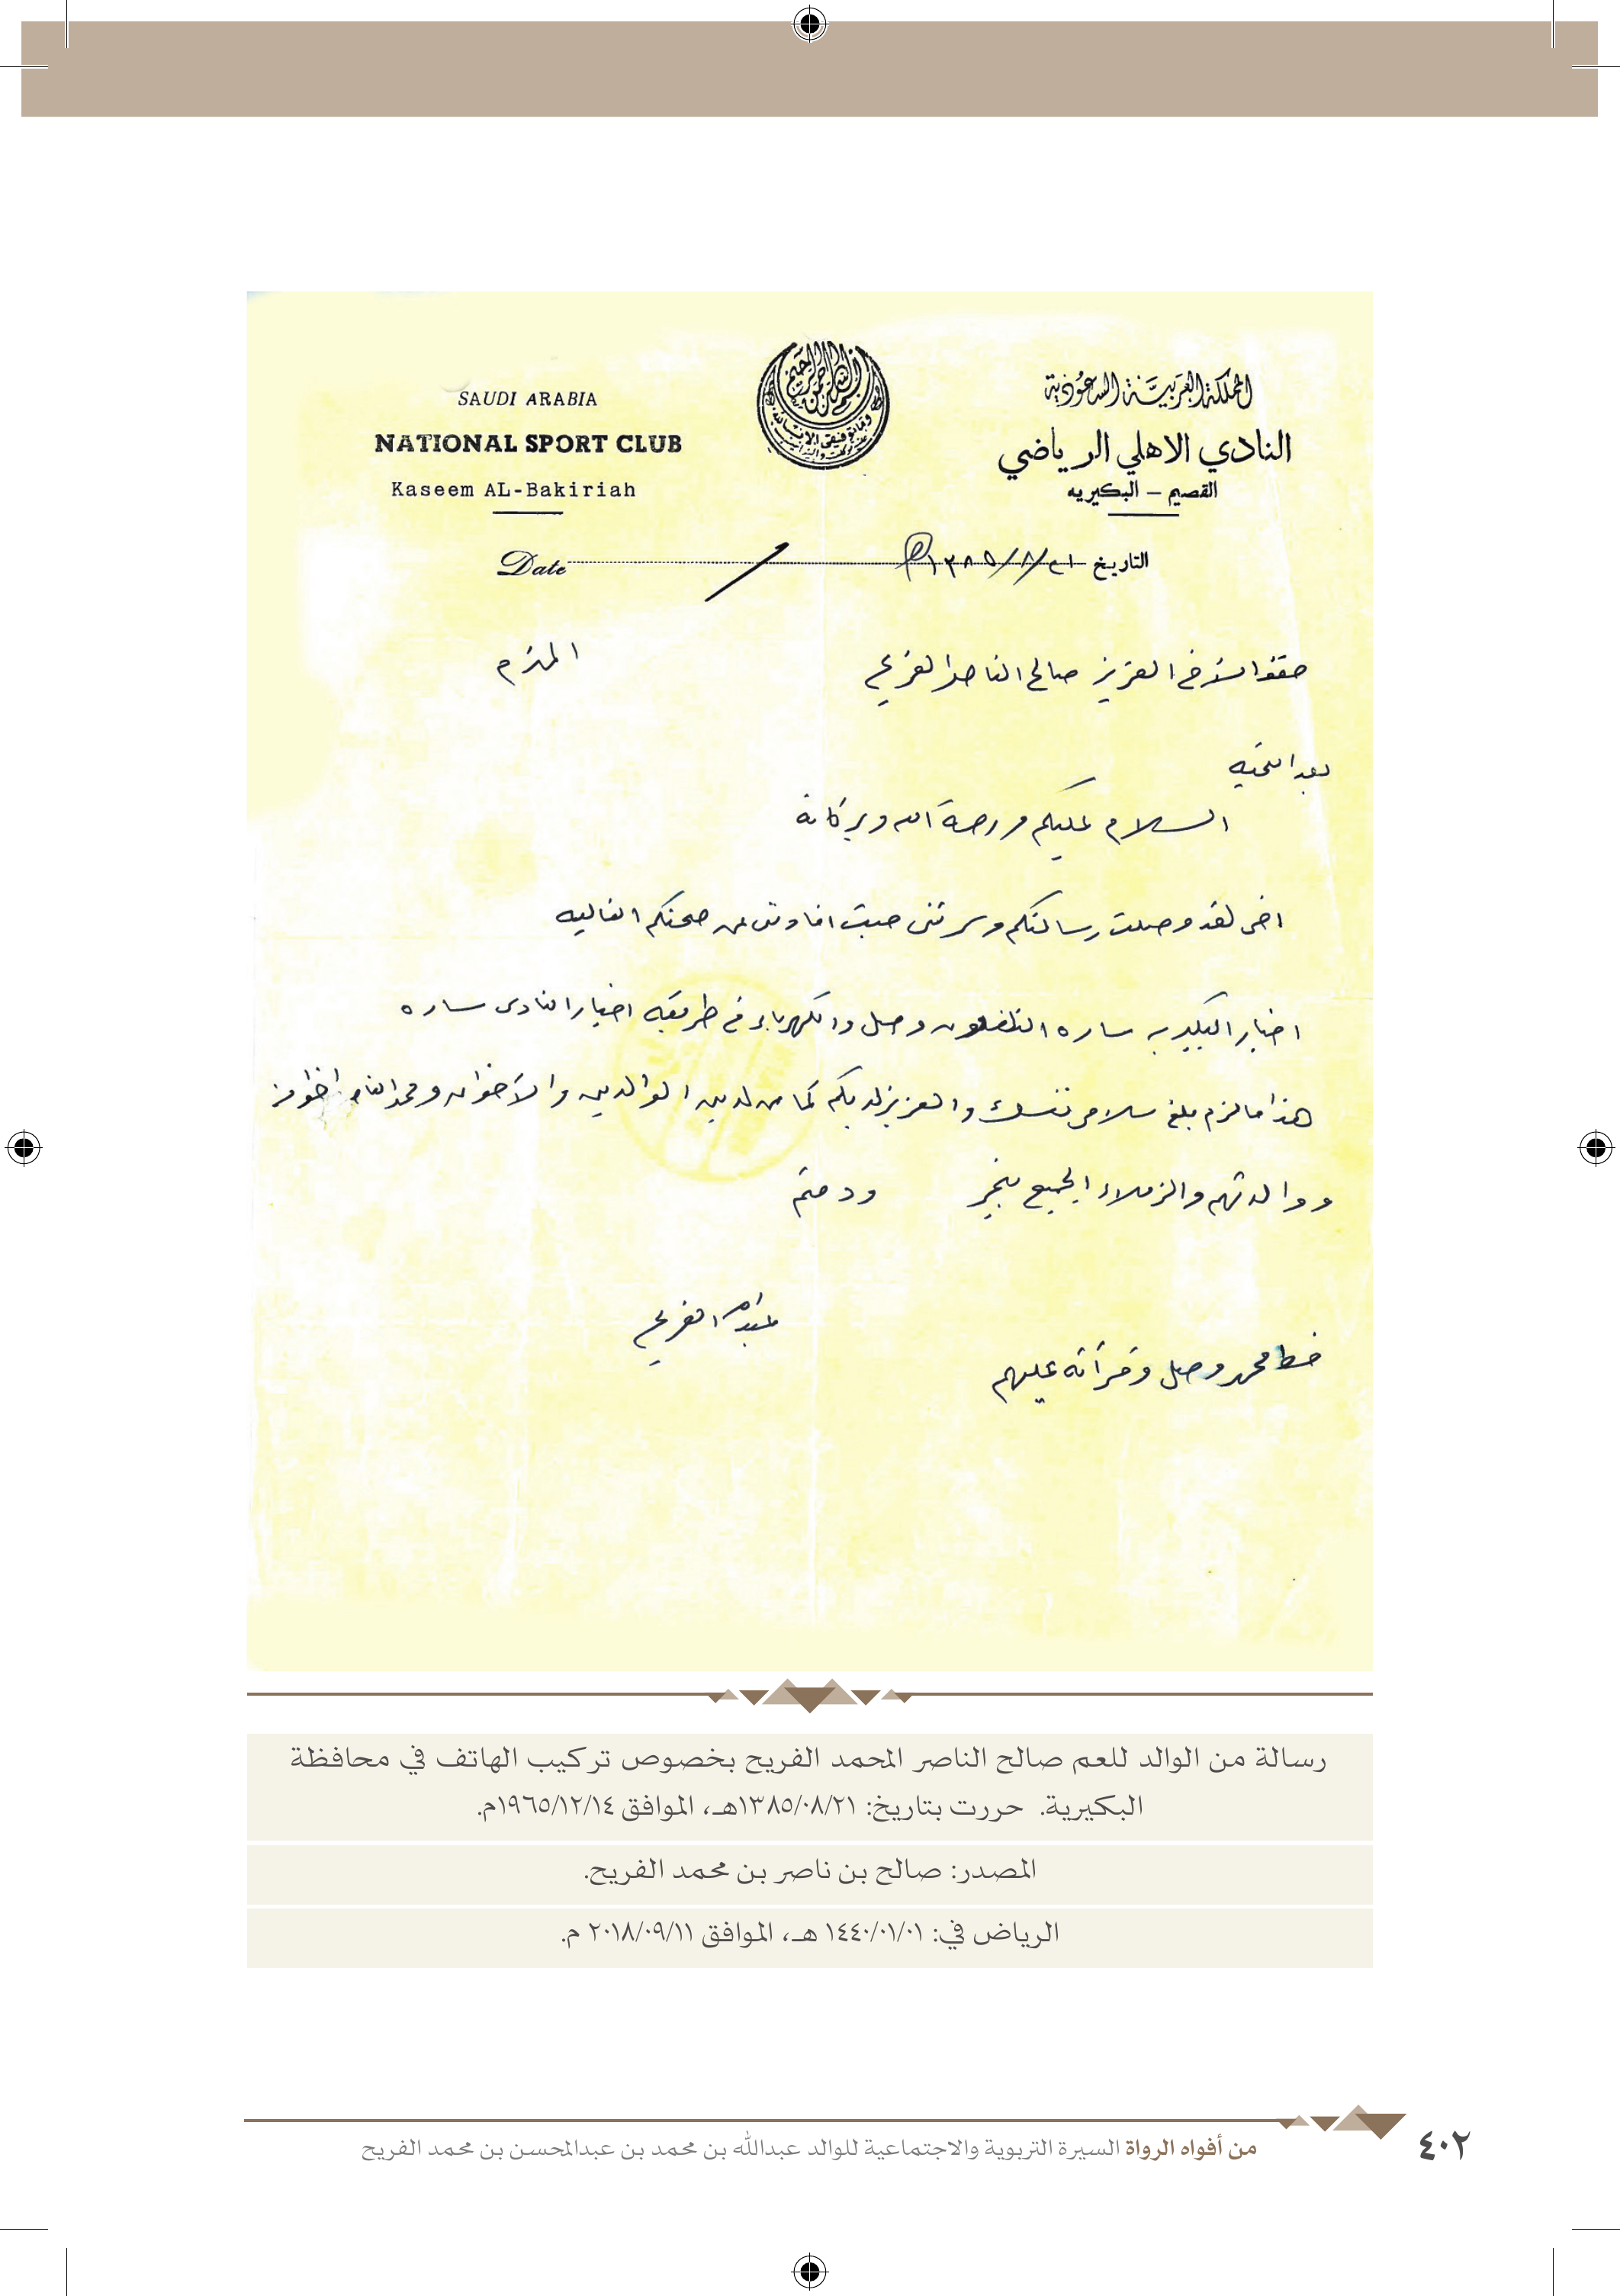 المملكة العربية السعودية
النادي الاهلي الرياضي
القصيم – البكيريه
SAUDI ARABIA
NATIONAL SPORT CLUB
Kaseem AL-Bakiriah
التاريخ ٢١/٨/١٣٨٥ھ Date
الأخ العزيز صالح الناصر الفريح المحترم
بعد التحيه
السلام عليكم ورحمة الله وبركاته
اخي لقد وصلت رسالتكم وسرتني حيث افادتني عن صحتكم الغاليه
اخبار البكيريه ساره التلفون وصل والكهرباء في طريقه اخبار النادي ساره
هذا مالزم بلغ سلامي نفسك والعزيز لديكم كما من لدينا الوالدين والاخوان ومحمد
ووالدتهم والزملاء الجميع بخير ودمتم
عبدالله الفريح
خط محمد وصل وقرأته عليهم
رسالة من الوالد للعم صالح الناصر المحمد الفريح بخصوص تركيب الهاتف في محافظة
البكيرية. حررت بتاريخ: ١٣٨٥/٠٨/٢١هـ، الموافق ١٩٦٥/١٢/١٤م.
المصدر: صالح بن ناصر بن محمد الفريح.
الرياض في: ١٤٤٠/٠١/٠١ هـ، الموافق ٢٠١٨/٠٩/١١ م.
من أفواه الرواة السيرة التربوية والاجتماعية للوالد عبدالله بن محمد بن عبدالمحسن بن محمد الفريح
٤٠٢